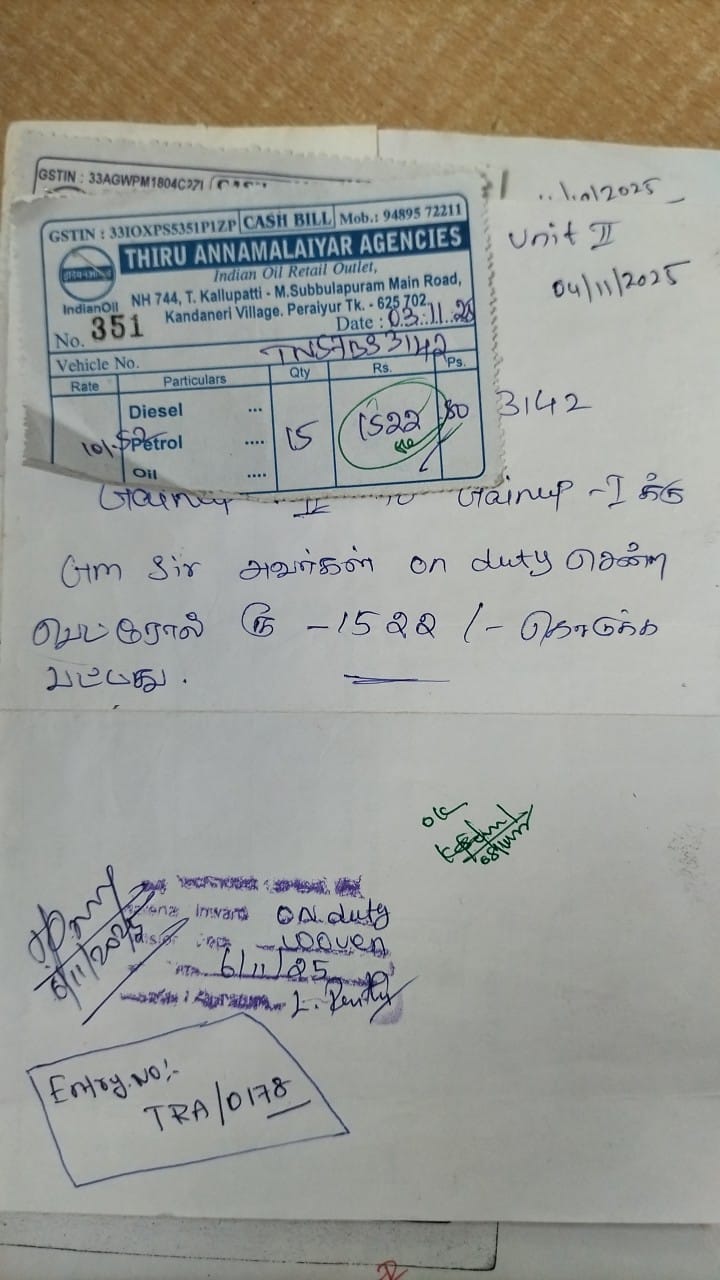 GSTIN : 33AGWPM1804C2Z1
/2025
GSTIN : 33IOXPS5351P1ZP CASH BILL Mob.: 94895 72211
THIRU ANNAMALAIYAR AGENCIES
Indian Oil Retail Outlet,
IndianOil
NH 744, T. Kallupatti - M.Subbulapuram Main Road,
Kandaneri Village. Peraiyur Tk. - 625 702
No. 351 Date : 03.11.25
Unit II
04/11/2025
Vehicle No. TN57BS3142
Rate Particulars Qty Rs. Ps.
Diesel ...
101.52 Petrol .... 15 1522 80
Oil ....
3142
Gainup II to Gainup - I க்கு
Gm Sir அவர்கள் on duty சென்ற
பெட்ரோல் ரூ - 1522 /- கொடுக்க
பட்டது.
ok
6/11/2025
Inward on duty
woven
6/11/25
Entry.No:-
TRA/0178